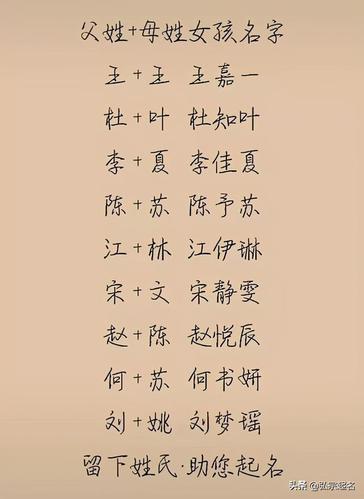 父姓+母姓女孩名字
王+王 王嘉一
杜+叶 杜知叶
李+夏 李佳夏
陈+苏 陈予苏
江+林 江伊琳
宋+文 宋静雯
赵+陈 赵悦辰
何+苏 何书妍
刘+姚 刘梦瑶
留下姓氏·助您起名
头条 @弘宗起名